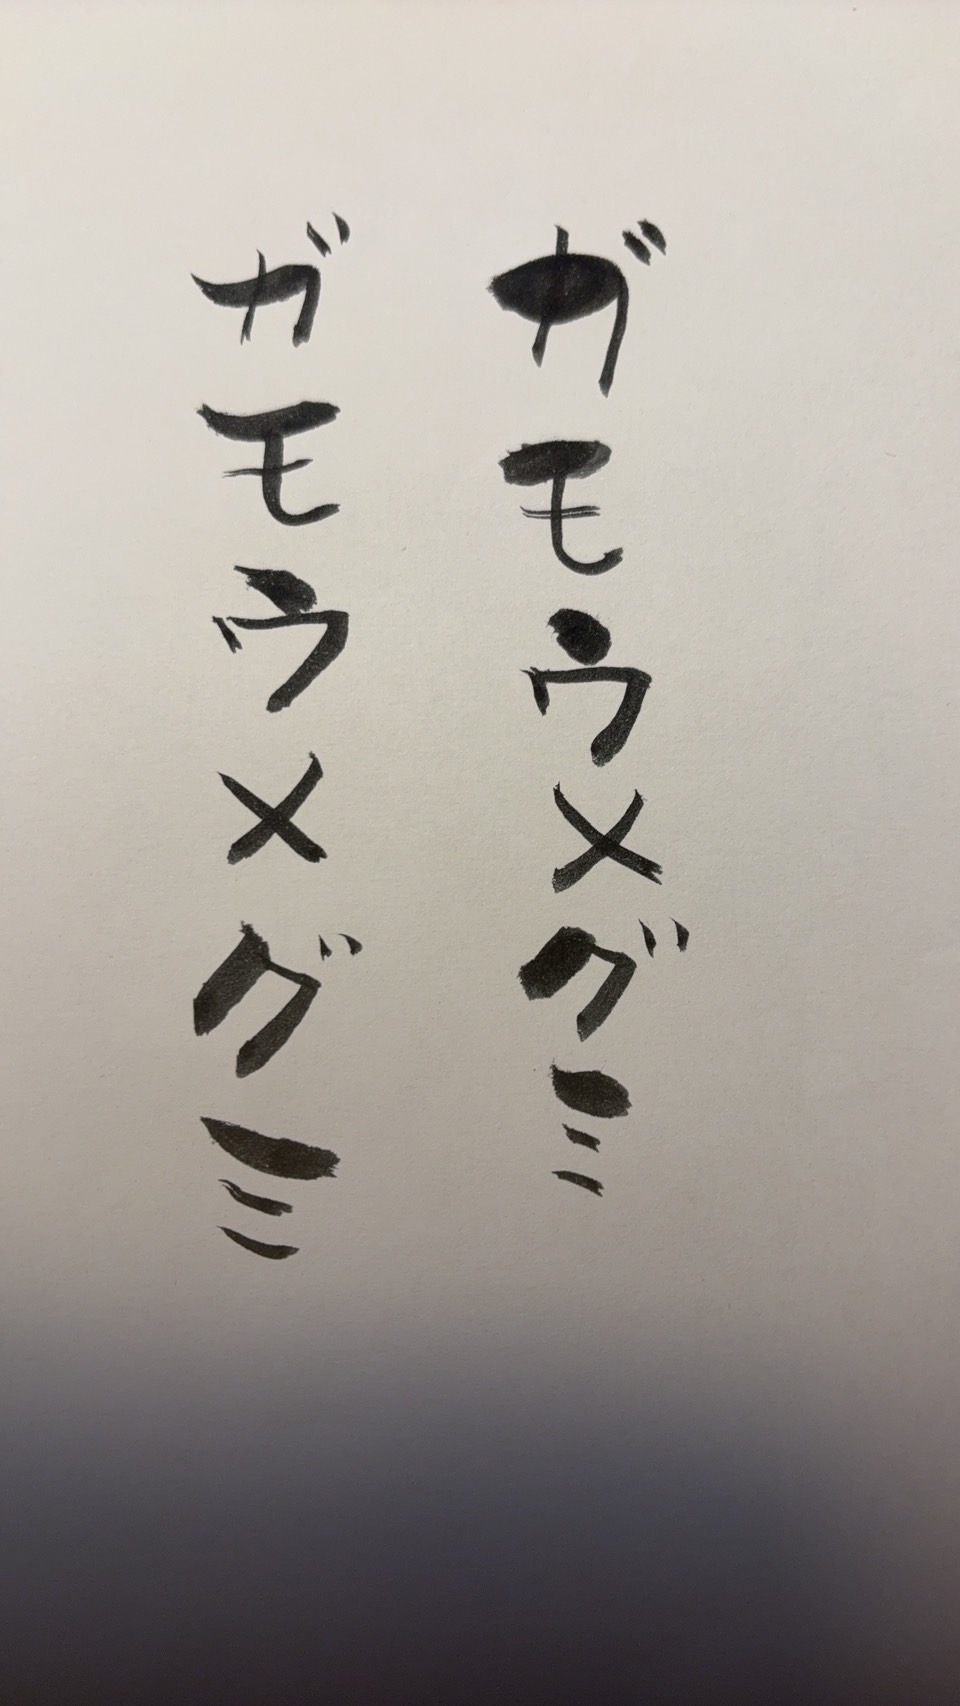 ガモウメグミ
ガモウメグミ